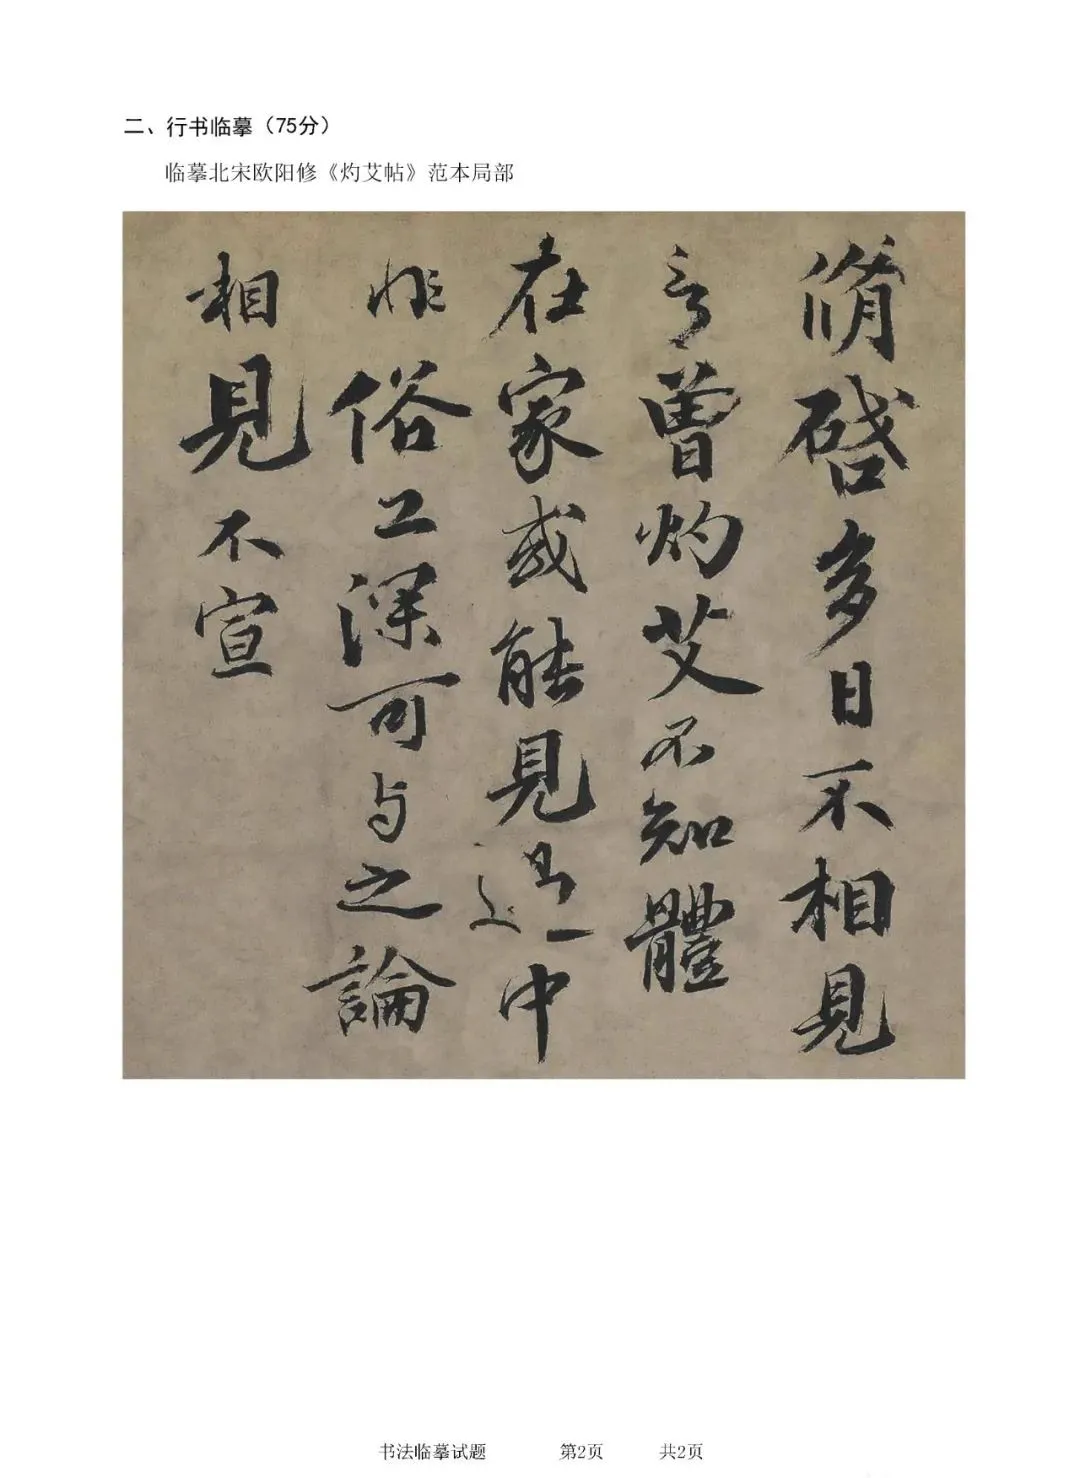 二、行书临摹（75分）
临摹北宋欧阳修《灼艾帖》范本局部
脩啓多日不相見
言曾灼艾不知體
在家或能見過中
非俗工深可与之論
相見不宣
书法临摹试题 第2页 共2页